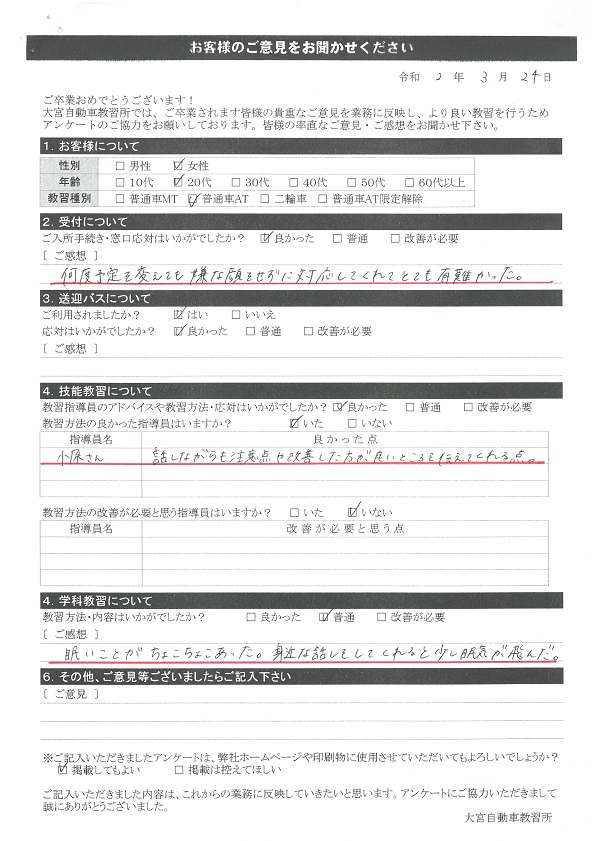 お客様のご意見をお聞かせください
令和 2 年 3 月 24 日
ご卒業おめでとうございます！
大宮自動車教習所では、ご卒業されます皆様の貴重なご意見を業務に反映し、より良い教習を行うため
アンケートのご協力をお願いしております。皆様の率直なご意見・ご感想をお聞かせ下さい。
1. お客様について
性別 □ 男性 ☑ 女性
年齢 □ 10代 ☑ 20代 □ 30代 □ 40代 □ 50代 □ 60代以上
教習種別 □ 普通車MT ☑ 普通車AT □ 二輪車 □ 普通車AT限定解除
2. 受付について
ご入所手続き・窓口応対はいかがでしたか？ ☑ 良かった □ 普通 □ 改善が必要
〔 ご感想 〕
何度予定を変えても嫌な顔をせずに対応してくれてとても有難かった。
3. 送迎バスについて
ご利用されましたか？ ☑ はい □ いいえ
応対はいかがでしたか？ ☑ 良かった □ 普通 □ 改善が必要
〔 ご感想 〕
4. 技能教習について
教習指導員のアドバイスや教習方法・応対はいかがでしたか？ ☑ 良かった □ 普通 □ 改善が必要
教習方法の良かった指導員はいますか？ ☑ いた □ いない
指導員名 良かった点
小原さん 話しながらも注意点や改善した方が良いところを伝えてくれる点。
教習方法の改善が必要と思う指導員はいますか？ □ いた ☑ いない
指導員名 改善が必要と思う点
4. 学科教習について
教習方法・内容はいかがでしたか？ □ 良かった ☑ 普通 □ 改善が必要
〔 ご感想 〕
眠いことがちょこちょこあった。身近な話しをしてくれると少し眠気が飛んだ。
6. その他、ご意見等ございましたらご記入下さい
〔 ご意見 〕
※ご記入いただきましたアンケートは、弊社ホームページや印刷物に使用させていただいてもよろしいでしょうか？
☑ 掲載してもよい □ 掲載は控えてほしい
ご記入いただきました内容は、これからの業務に反映していきたいと思います。アンケートにご協力いただきまして
誠にありがとうございました。
大宮自動車教習所